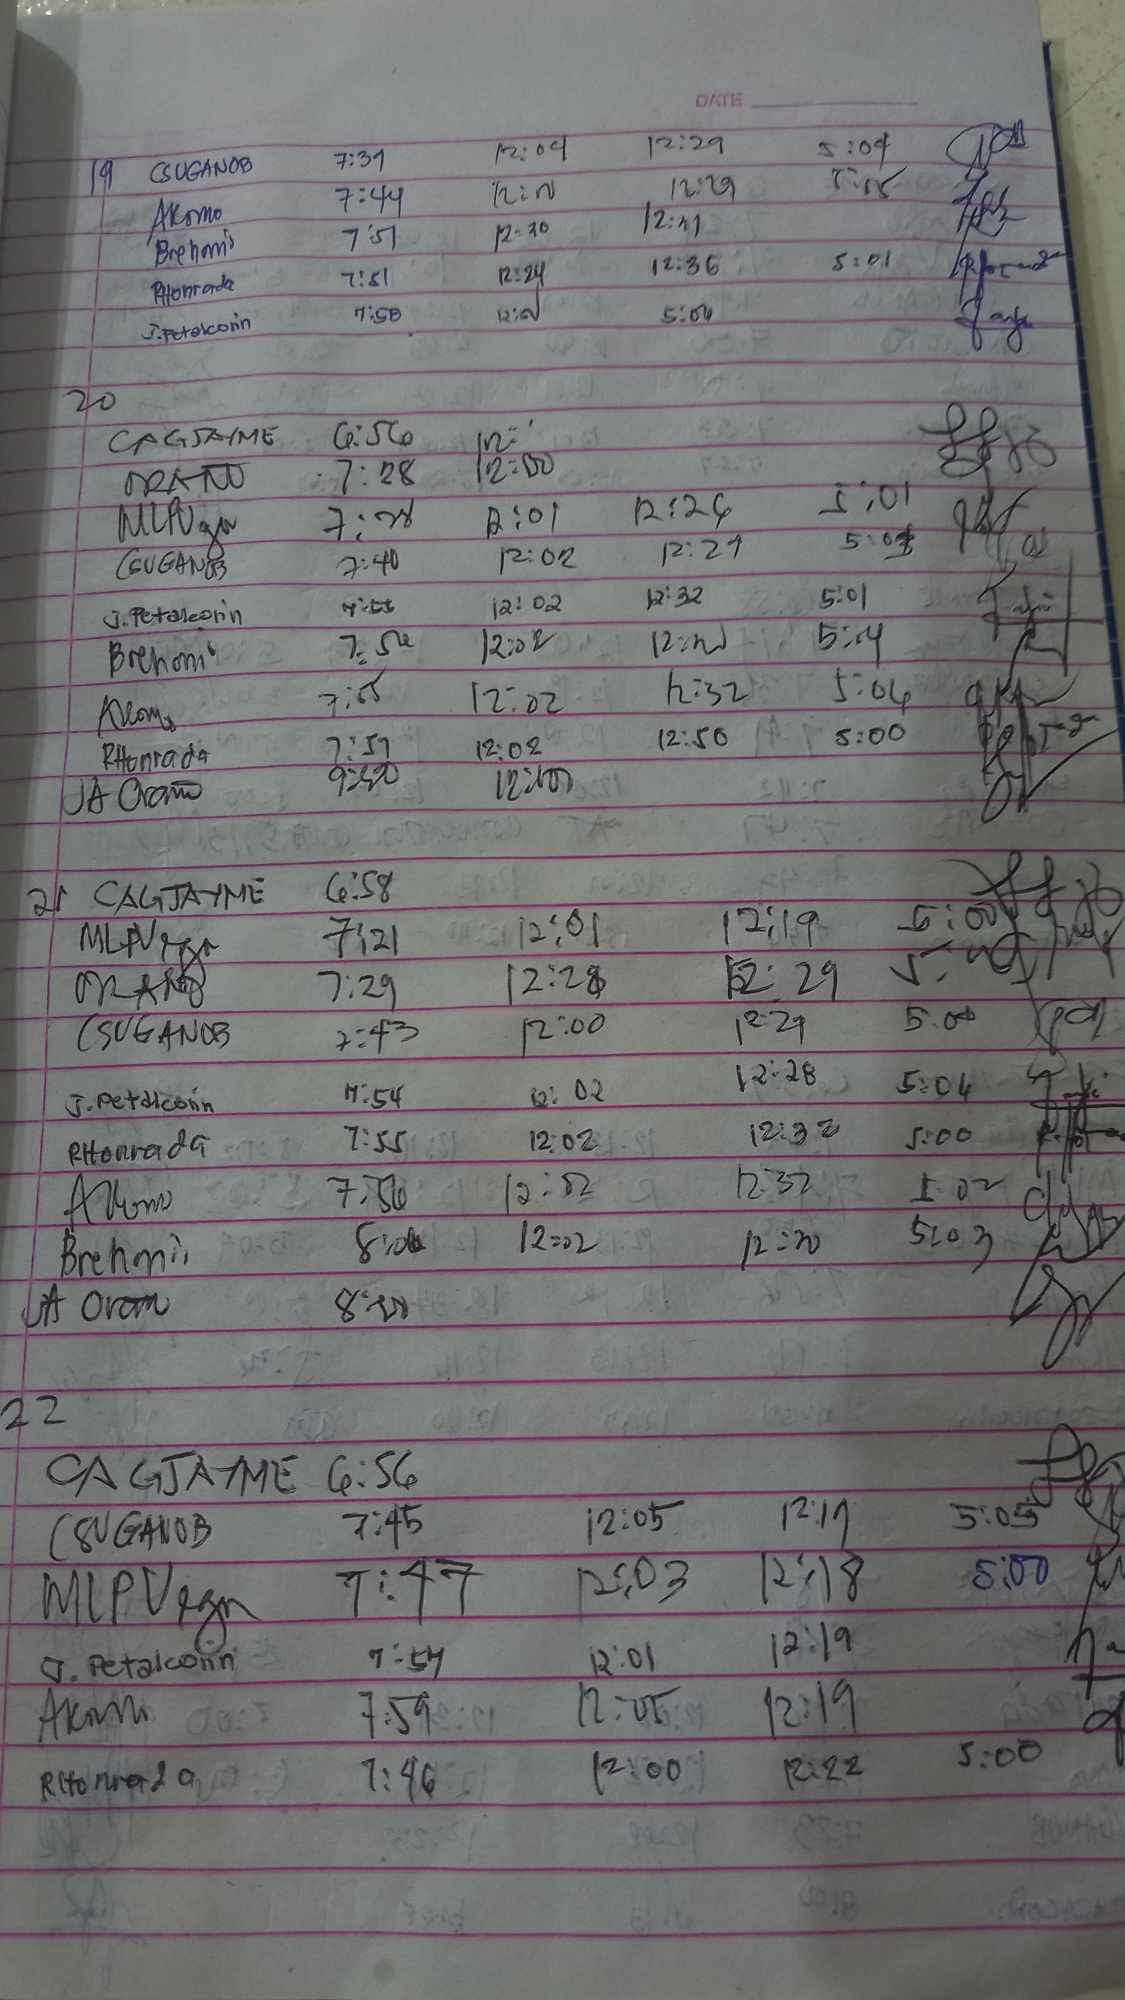 DATE
19 CSUGANOB 7:39 12:04 12:29 5:04
AKomo 7:44 12:29
Brehonis 7:51 12:30
RHonrada 7:51 12:24 12:36 5:01
J.Petalcorin 7:58 5:04
20
CAGJAYME 6:56 12:
7:28 12:00
MLPVega 7:28 12:01 12:26 5:01
CSUGANOB 7:40 12:02 12:29
J.Petalcorin 7:55 12:02 12:32 5:01
Brehonis 7:56 12:02 5:04
AKomo 7:55 12:02 12:32 5:04
RHonrada 7:57 12:02 12:50 5:00
JA Oramo
21 CAGJAYME 6:58
MLPVega 7:21 12:01 12:19 5:00
7:29 12:28 12:29
CSUGANOB 7:43 12:00 12:29 5:00
J.Petalcorin 7:54 12:02 12:28 5:04
RHonrada 7:55 12:02 12:32 5:00
AKomo 7:56 12:02 12:32 5:02
Brehonis 12:02 12:30 5:03
JA Oramo
22
CAGJAYME 6:56
CSUGANOB 7:45 12:05 12:19 5:05
MLPVega 7:47 12:03 12:18 5:00
J.Petalcorin 7:54 12:01 12:19
AKomo 7:59 12:05 12:19
RHonrada 7:46 12:00 12:22 5:00